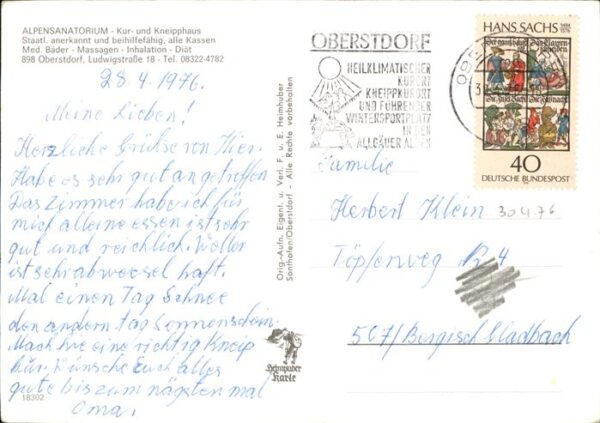 ALPENSANATORIUM - Kur- und Kneipphaus
Staatl. anerkannt und beihilfefähig, alle Kassen
Med. Bäder - Massagen - Inhalation - Diät
898 Oberstdorf, Ludwigstraße 18 - Tel. 08322-4782
28.4.1976.
Meine Lieben!
Herzliche Grüße von Hier.
Habe es sehr gut angetroffen
Das Zimmer habe ich für
mich alleine essen ist sehr
gut und reichlich. Wetter
ist sehr abwecsel haft.
Mal einen Tag Schnee
den andern tag Sonnenschein.
Mach hie eine richtig Kneip
kur. Wünsche Euch alles
gute bis zum nägsten mal
Oma,
18302
Orig.-Aufn. Eigent. u. Verl. F. u. E. Heimhuber
Sonthofen/Oberstdorf - Alle Rechte vorbehalten
Heimhuber
Karte
OBERSTDORF
HEILKLIMATISCHER
KURORT
KNEIPPKURORT
UND FÜHRENDER
WINTERSPORTPLATZ
IN DEN
ALLGÄUER ALPEN
HANS SACHS 1494
1576
40
DEUTSCHE BUNDESPOST
Familie
Herbert Klein
30.4.76
Töpferweg 4
507/Bergisch Gladbach